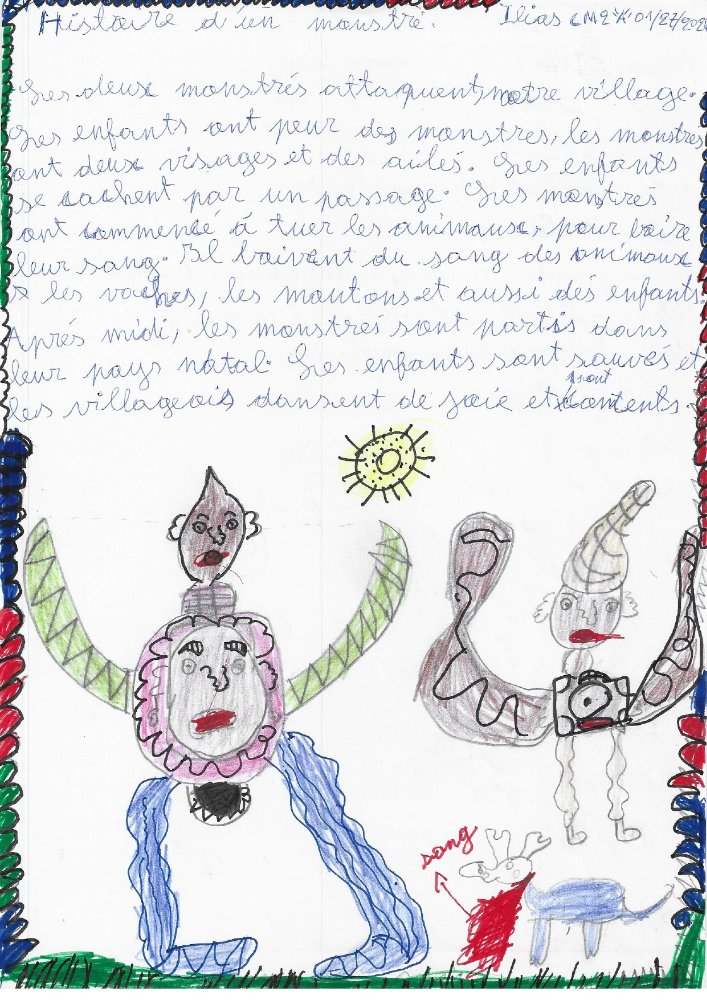 Histoire d'un monstre. Ilias CM2 "A" 01/27/202
Les deux monstrés attaquent notre village.
Les enfants ont peur des monstres, les monstres
ont deux visages et des ailés. Les enfants
se cachent par un passage. Les monstrés
ont commencé à tuer les animaux, pour boire
leur sang. Il boivent du sang des animaux
les vaches, les moutons et aussi dés enfants.
Aprés midi, les monstrés sont partis dans
leur pays natal. Les enfants sont sauvés et
les villageois dansent de joie et sont contents.
sang